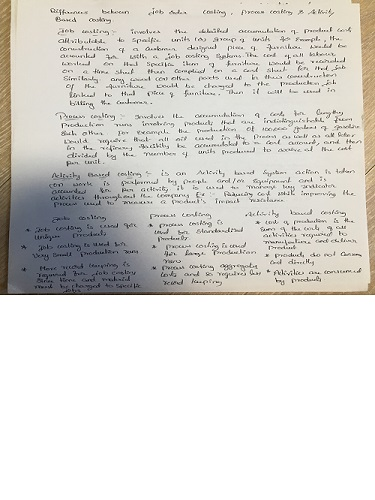 Differences between job order costing, process costing & Activity
Based costing.
Job costing:- involves the detailed accumulation of product cost
attributable to specific units (or) group of units for Example, the
construction of a custom designed piece of furniture would be
accounted for with a job costing system. The cost of all labour
worked on that specific item of furniture would be recorded
on a time sheet then compiled on a cost sheet for that job
Similarly any wood (or) other parts used in the construction
of the furniture would be charged to the production job
linked to that piece of furniture. Then it will be used in
billing the customer.
Process costing:- Involves the accumulation of costs for lengthy
production runs involving products that are indistinguishable from
each other. for Example the production of 100,000 gallons of gasoline
would require that all oil used in the process as well as all labor
in the refinery facility be accumulated to a cost account, and then
divided by the number of units produced to arrive at the cost
per unit.
Activity Based costing:- is an Activity based System action is taken
(or) work is performed by people and/or equipment and is
accounted for per activity, it is used to manage key indicator
activities throughout the company Ex:- Reducing cost while improving the
process used to measure a product's impact resistance
Job costing
* Job costing is used for
unique products
* Job costing is used for
very small production runs
* More record keeping is
required for job
time and material
must be charged to specific
jobs
Process costing
* process costing is
used for standardized
products
* process costing is used
for large production
runs
* process costing aggregates
costs and so requires less
record keeping
Activity based costing
* cost of production is the
sum of the costs of all
activities required to
manufacture and deliver
product
* products do not consume
cost directly
* Activities are consumed
by products